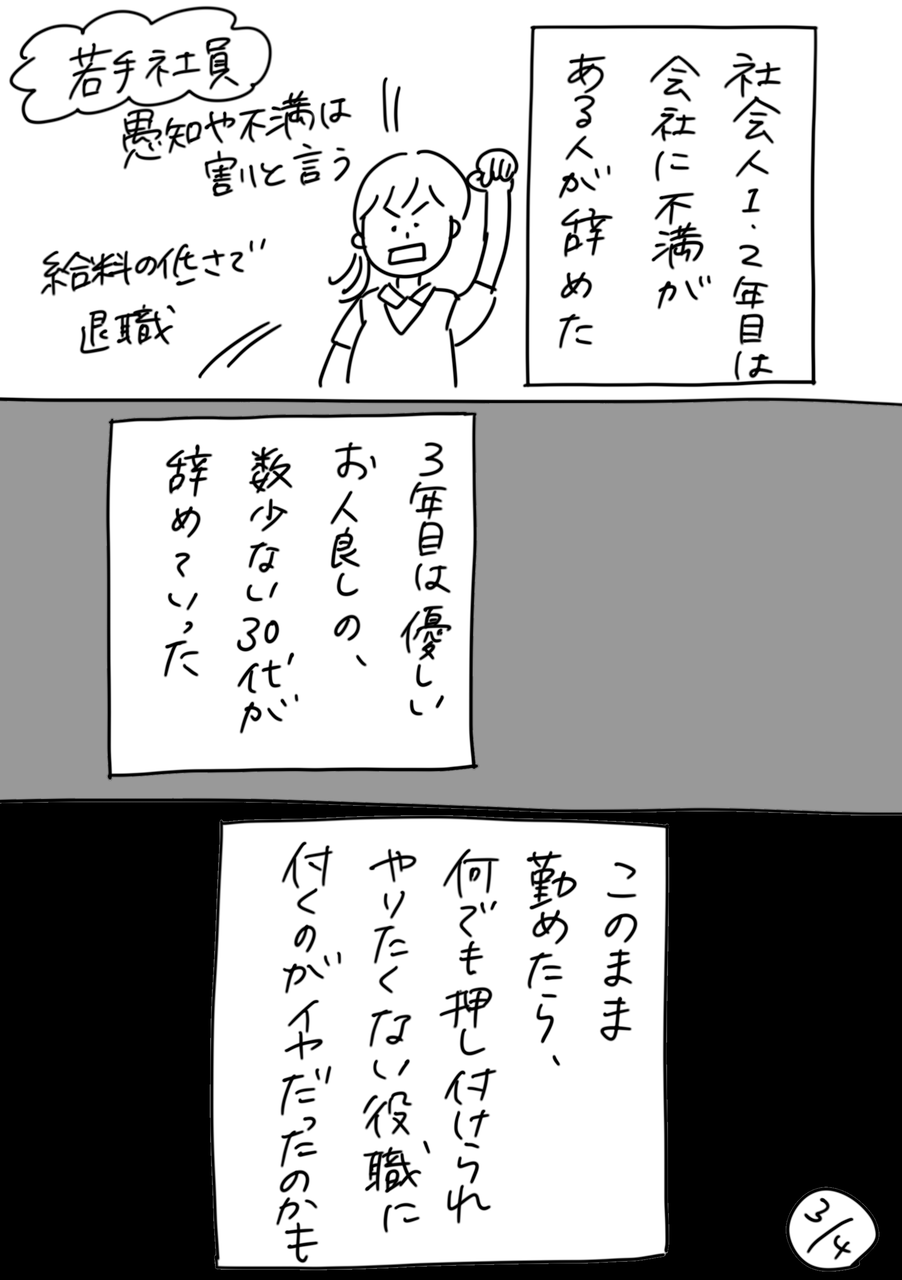 社会人1·2年目は
会社に不満が
ある人が辞めた
若手社員
愚知や不満は
割りと言う
給料の低さで
退職
3年目は優しい
お人良しの、
数少ない30代が
辞めていった
このまま
勤めたら、
何でも押し付けられ
やりたくない役職に
付くのがイヤだったのかも
3/4